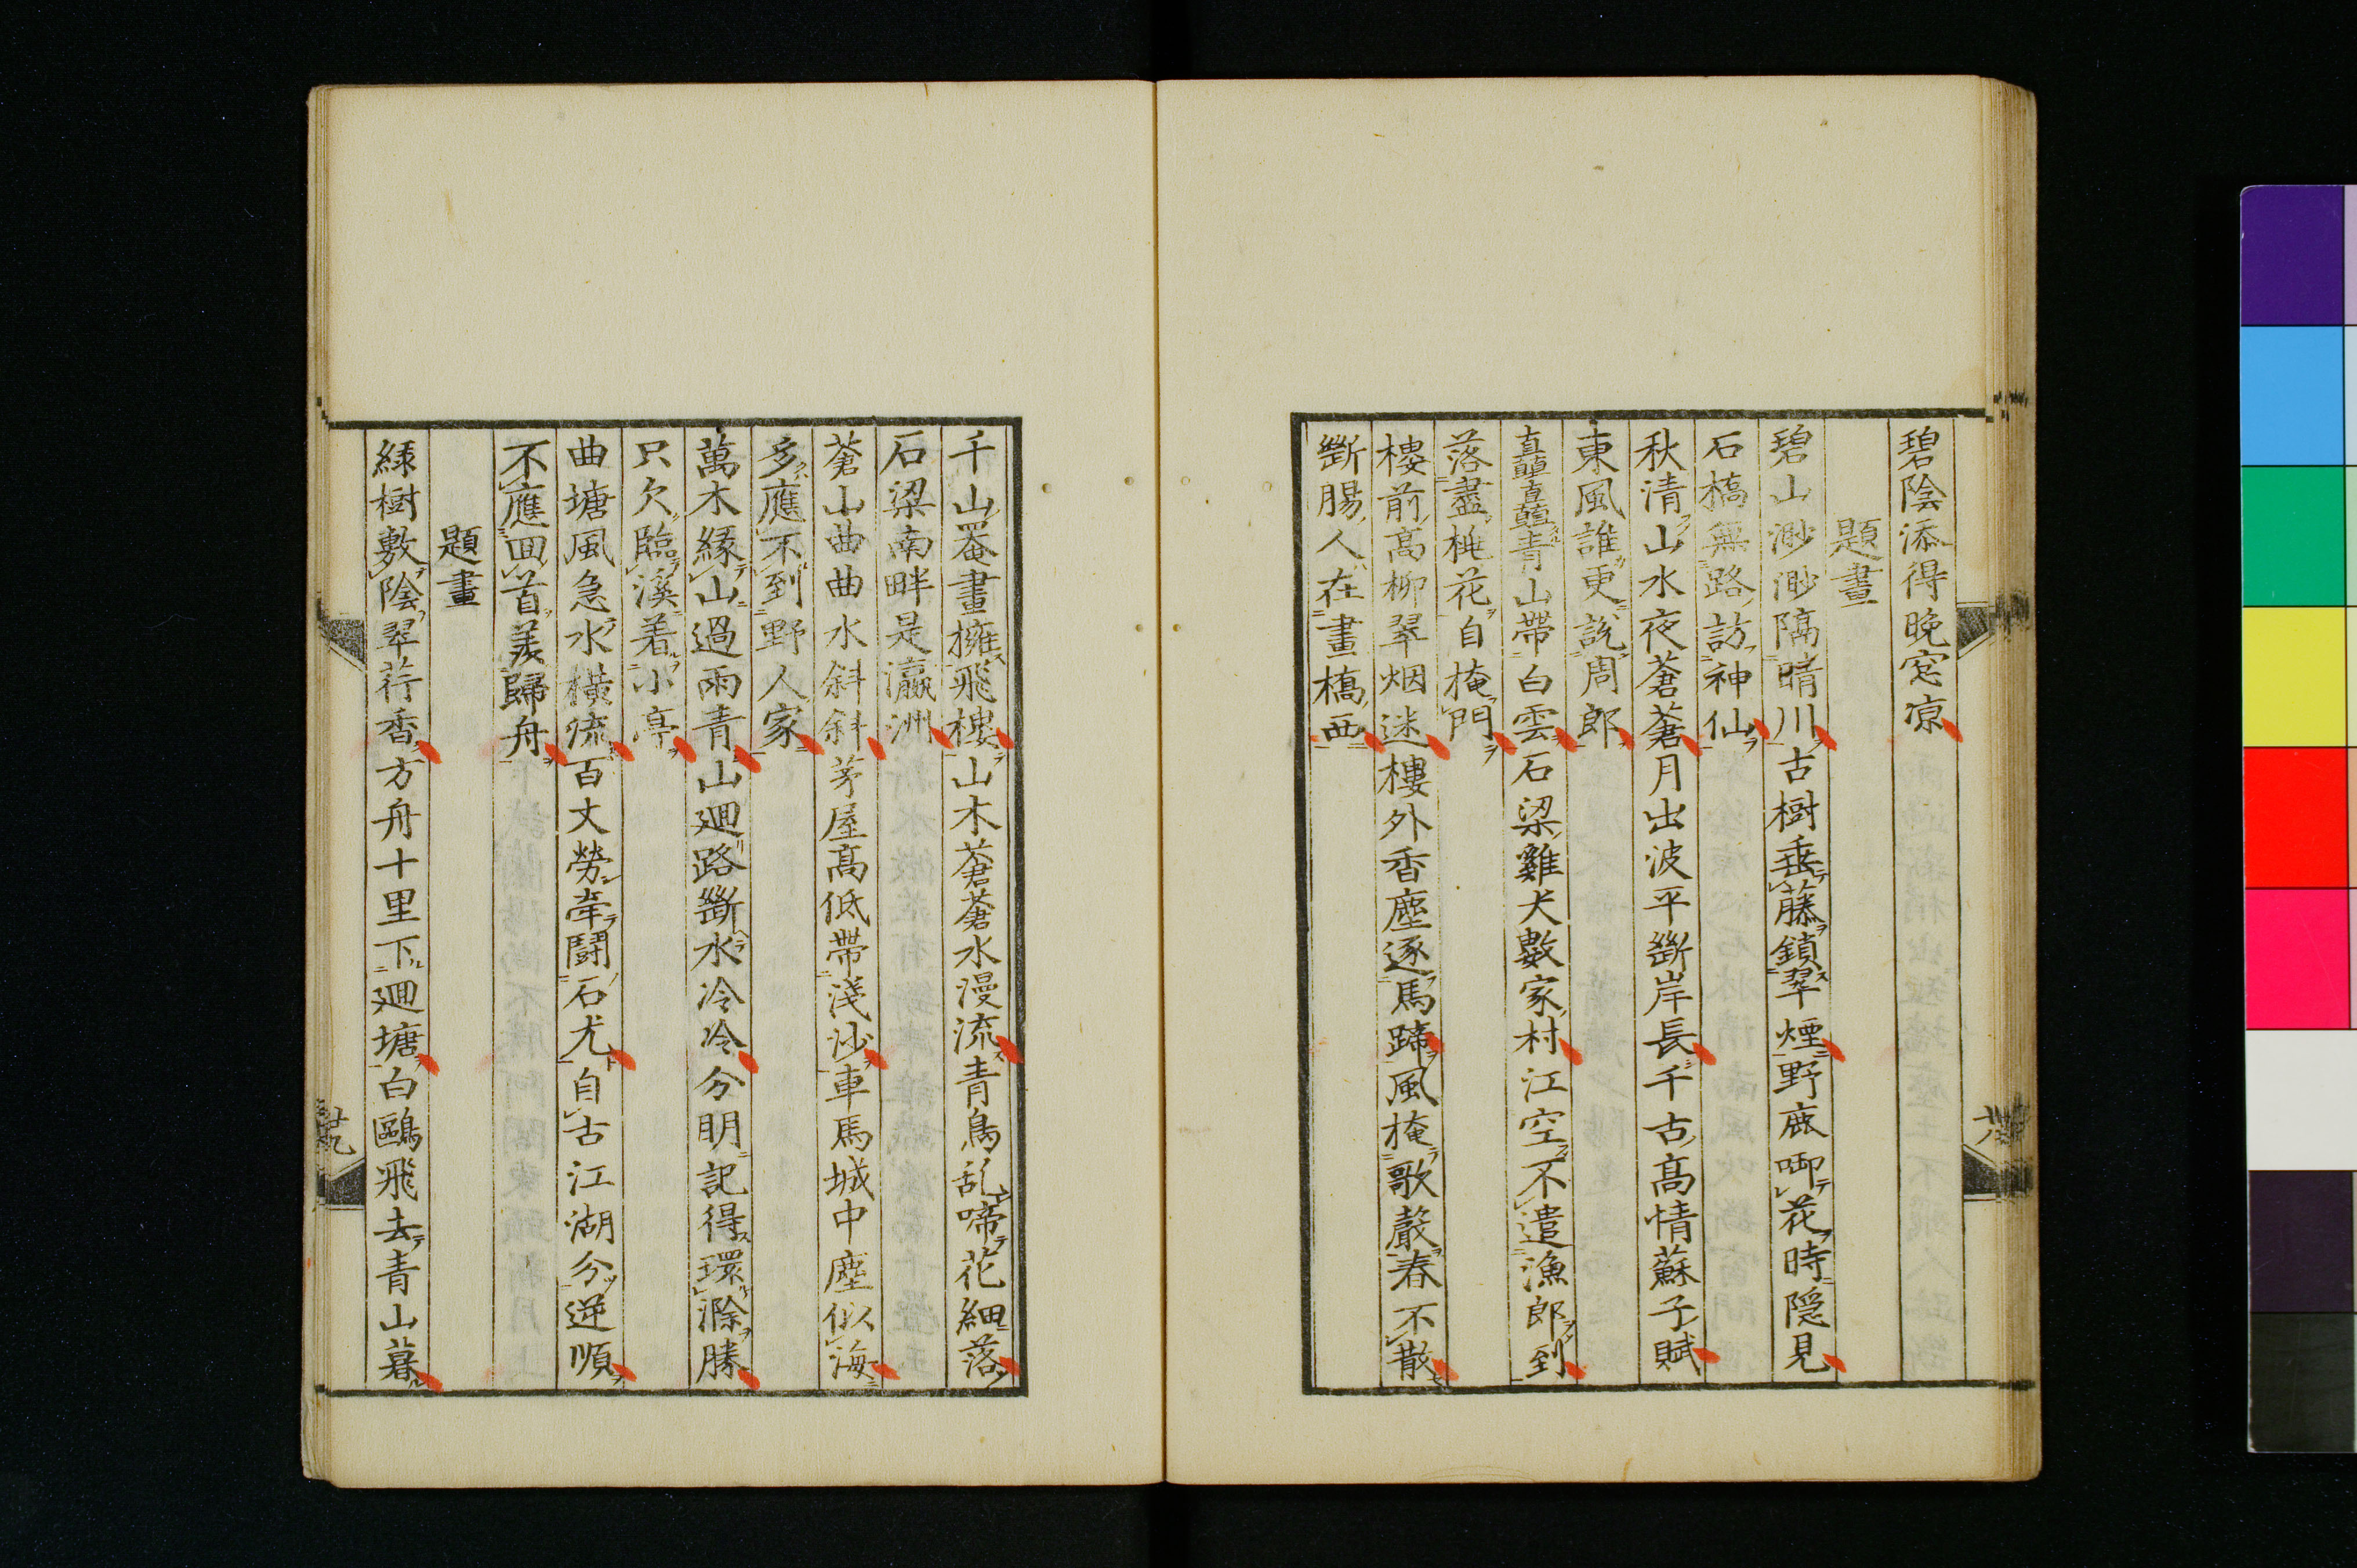 碧陰添得晚窓凉
題畫
碧山渺渺隔晴川古樹垂藤鎖翠煙野鹿啣花時隠見
石橋無路訪神仙
秋清山水夜蒼蒼月出波平斷岸長千古髙情蘇子賦
東風誰更說周郎
矗矗青山帶白雲石梁雞犬數家村江空不遣漁郎到
落盡桃花自掩門
樓前髙柳翠烟迷樓外香塵逐馬蹄風掩歌聲春不散
斷腸人在畫橋西
廿八
千山罨畫擁飛樓山木蒼蒼水漫流青鳥乱啼花細落
石梁南畔是瀛洲
蒼山曲曲水斜斜茅屋髙低帶淺沙車馬城中塵似海
多應不到野人家
萬木緣山過雨青山廻路斷水冷冷分明記得環滁勝
只欠臨溪着小亭
曲塘風急水橫流百丈勞牽鬪石尤自古江湖分逆順
不應囬首羨歸舟
題畫
綠樹敷陰翠荇香方舟十里下廻塘白鷗飛去青山暮
廿九